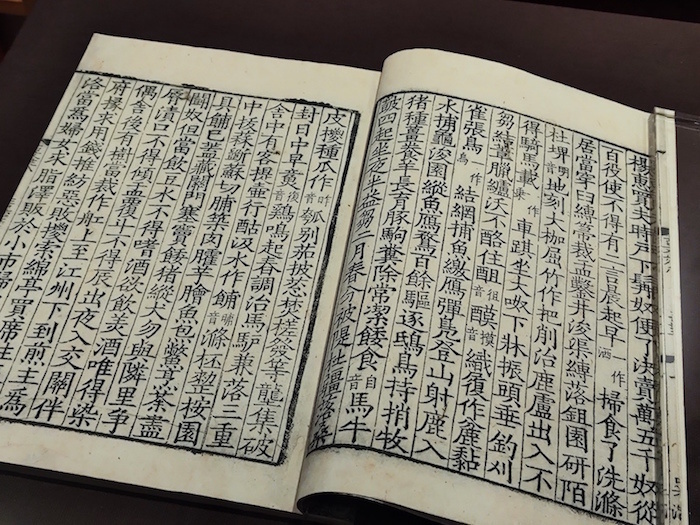 楊惠買夫時戶下髯奴便了決賣萬五千奴從
百役使不得有二言晨起早洒一作掃食了洗滌
居當穿臼縛箒裁盂鑿井浚渠縛落鉏園研陌
杜埤地刻大枷屈竹作杷削治鹿盧出入不
得騎馬載乘作車踑坐大呶下牀振頭垂釣刈
芻結葦臘纑沃不酪住酤織履作麤黏
雀張鳥結網捕魚繳鴈彈鳧登山射鹿入
水捕龜浚園縱魚鴈鶩百餘驅逐鴟鳥持捎牧
猪種薑養芋長育豚駒糞除常潔餧食音自馬牛
鼓四起坐夜半益芻二月春分被堤杜疆落桑
皮椶種瓜作瓠別茄披葱焚槎發芋壟集破
封日中早雞鳴起舂調治馬驢兼落三重
舍中有客提壺行酤汲水作餔音哺滌杯整桉園
中拔蒜斷蘇切脯築肉臛芋膾魚炰鱉烹茶盡
具餔已蓋藏關門塞竇餧猪縱犬勿與隣里爭
鬪奴但當飯豆水不得嗜酒欲飲美酒唯得染
脣漬口不得傾盂覆斗不得辰出夜入交關伴
偶舍後有樹當裁作舡上至江州下到前主為
府掾求用錢推紡惡敗㯶索綿亭買席往
洛當為婦女求脂澤販於小市歸